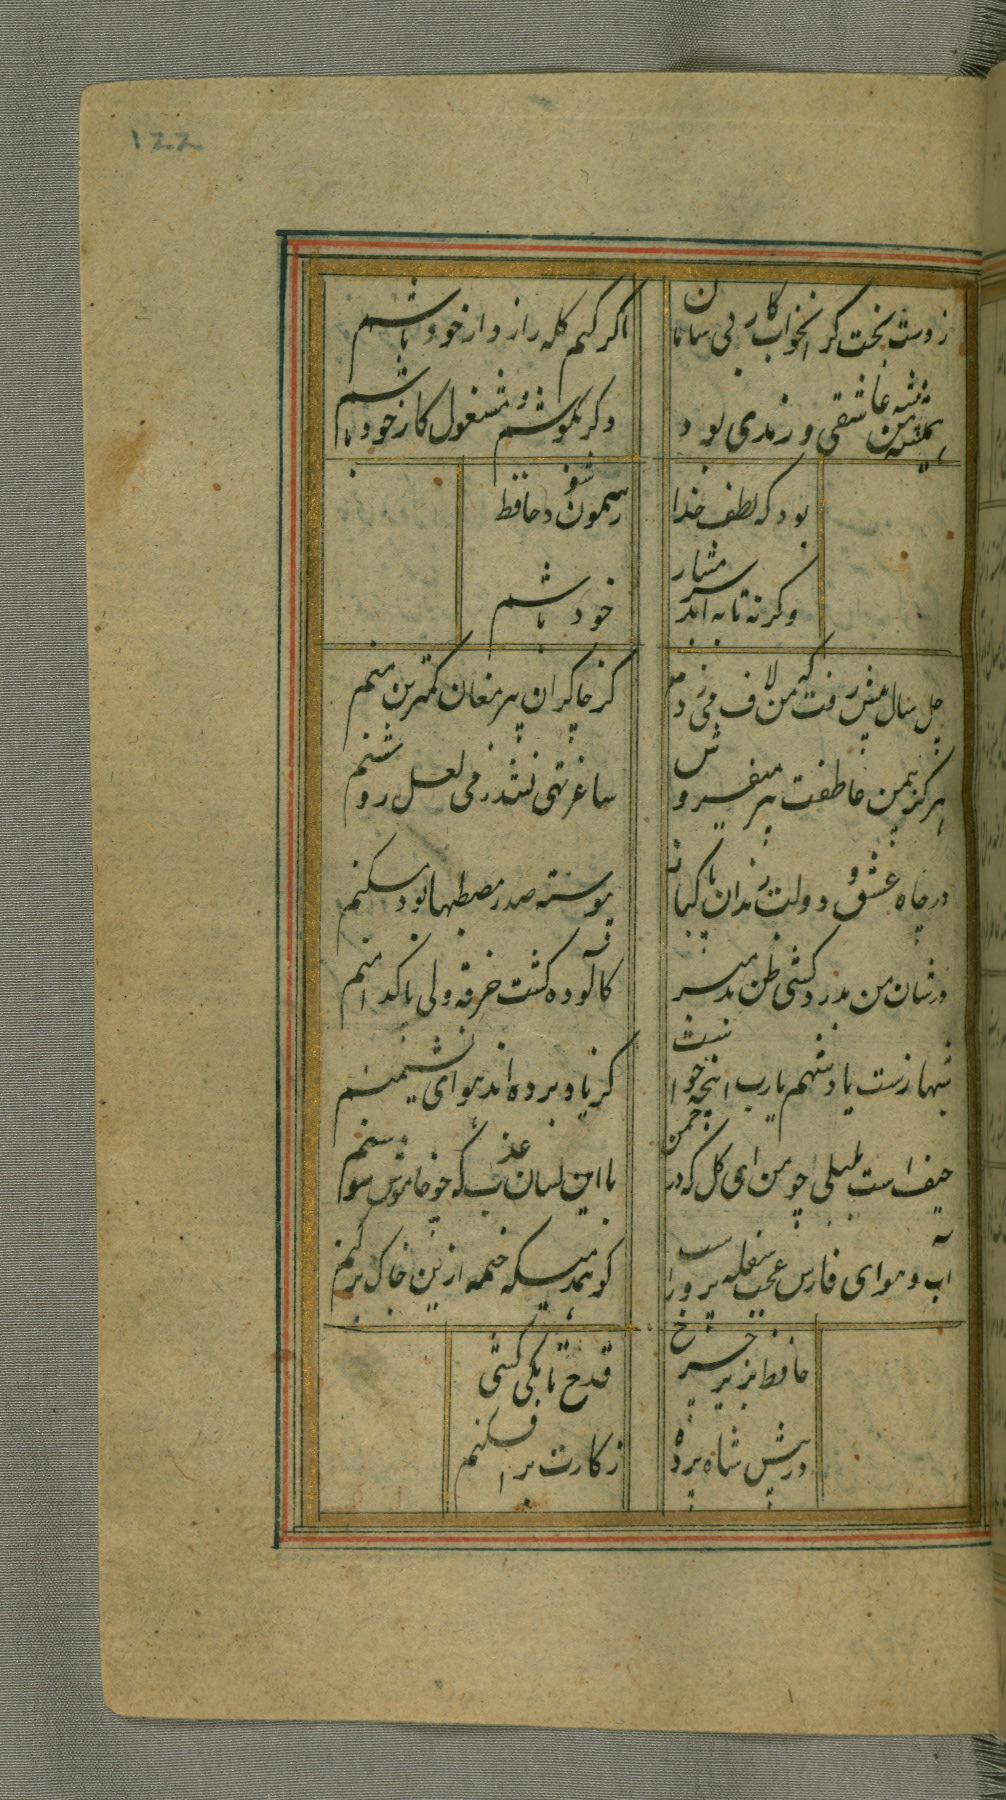 ۱۲۲
ز دست بخت کران خواب و کار بی سامان
اکر کنم کله راز دار خود باشم
همیشه پیشه من عاشقی و رندی بود
دکر بکوشم و مشغول کار خود باشم
بود که لطف خدا
رهنمون شود حافظ
وکرنه تا به ابد شرمسار
خود باشم
چل سال پیش رفت که من لاف می زدم
کز چاکران پیر مغان کمترین منم
هرکز بیمن عاطفت پیر میفروش
ساغر تهی نشد ز می لعل روشنم
در جاه عشق و دولت رندان پاکباز
پیوسته صدر مصطبها بود مسکنم
در شان من بدرد کشی ظن بد مبر
کآلوده کشت خرقه ولی پاکدامنم
شهباز دست پادشهم یارب از چه خواست
کز یاد برده اند هوای نشیمنم
حیف است بلبلی چو من ای کل که در چمن
با این لسان عذب که خوخاموش سوسنم
آب و هوای فارس عجب سفله پرور است
کو همدمی که خیمه ازین خاک بر کنم
حافظ بزیر خرقه
قدح تا بکی کشی
در پیش شاه پرده
ز کارت بر افکنم